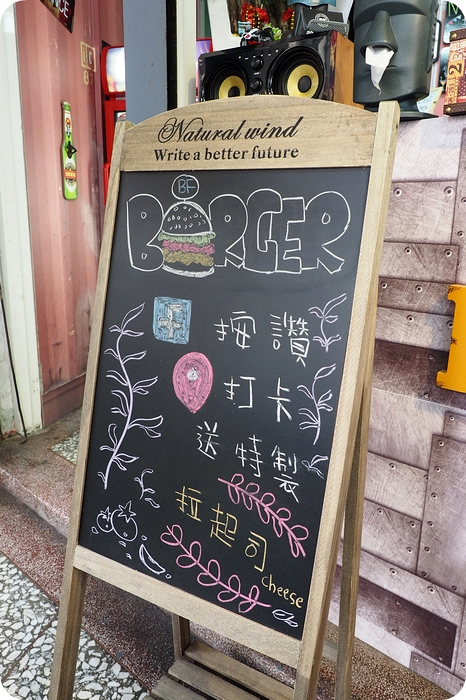 Natural wind
Write a better future
BF
BURGER
按讚
打卡
送特製
拉起司
cheese